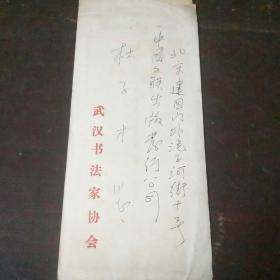 北京建国门外泡子河街十号
中国文联出版发行公司
杜子才 同志
武汉书法家协会